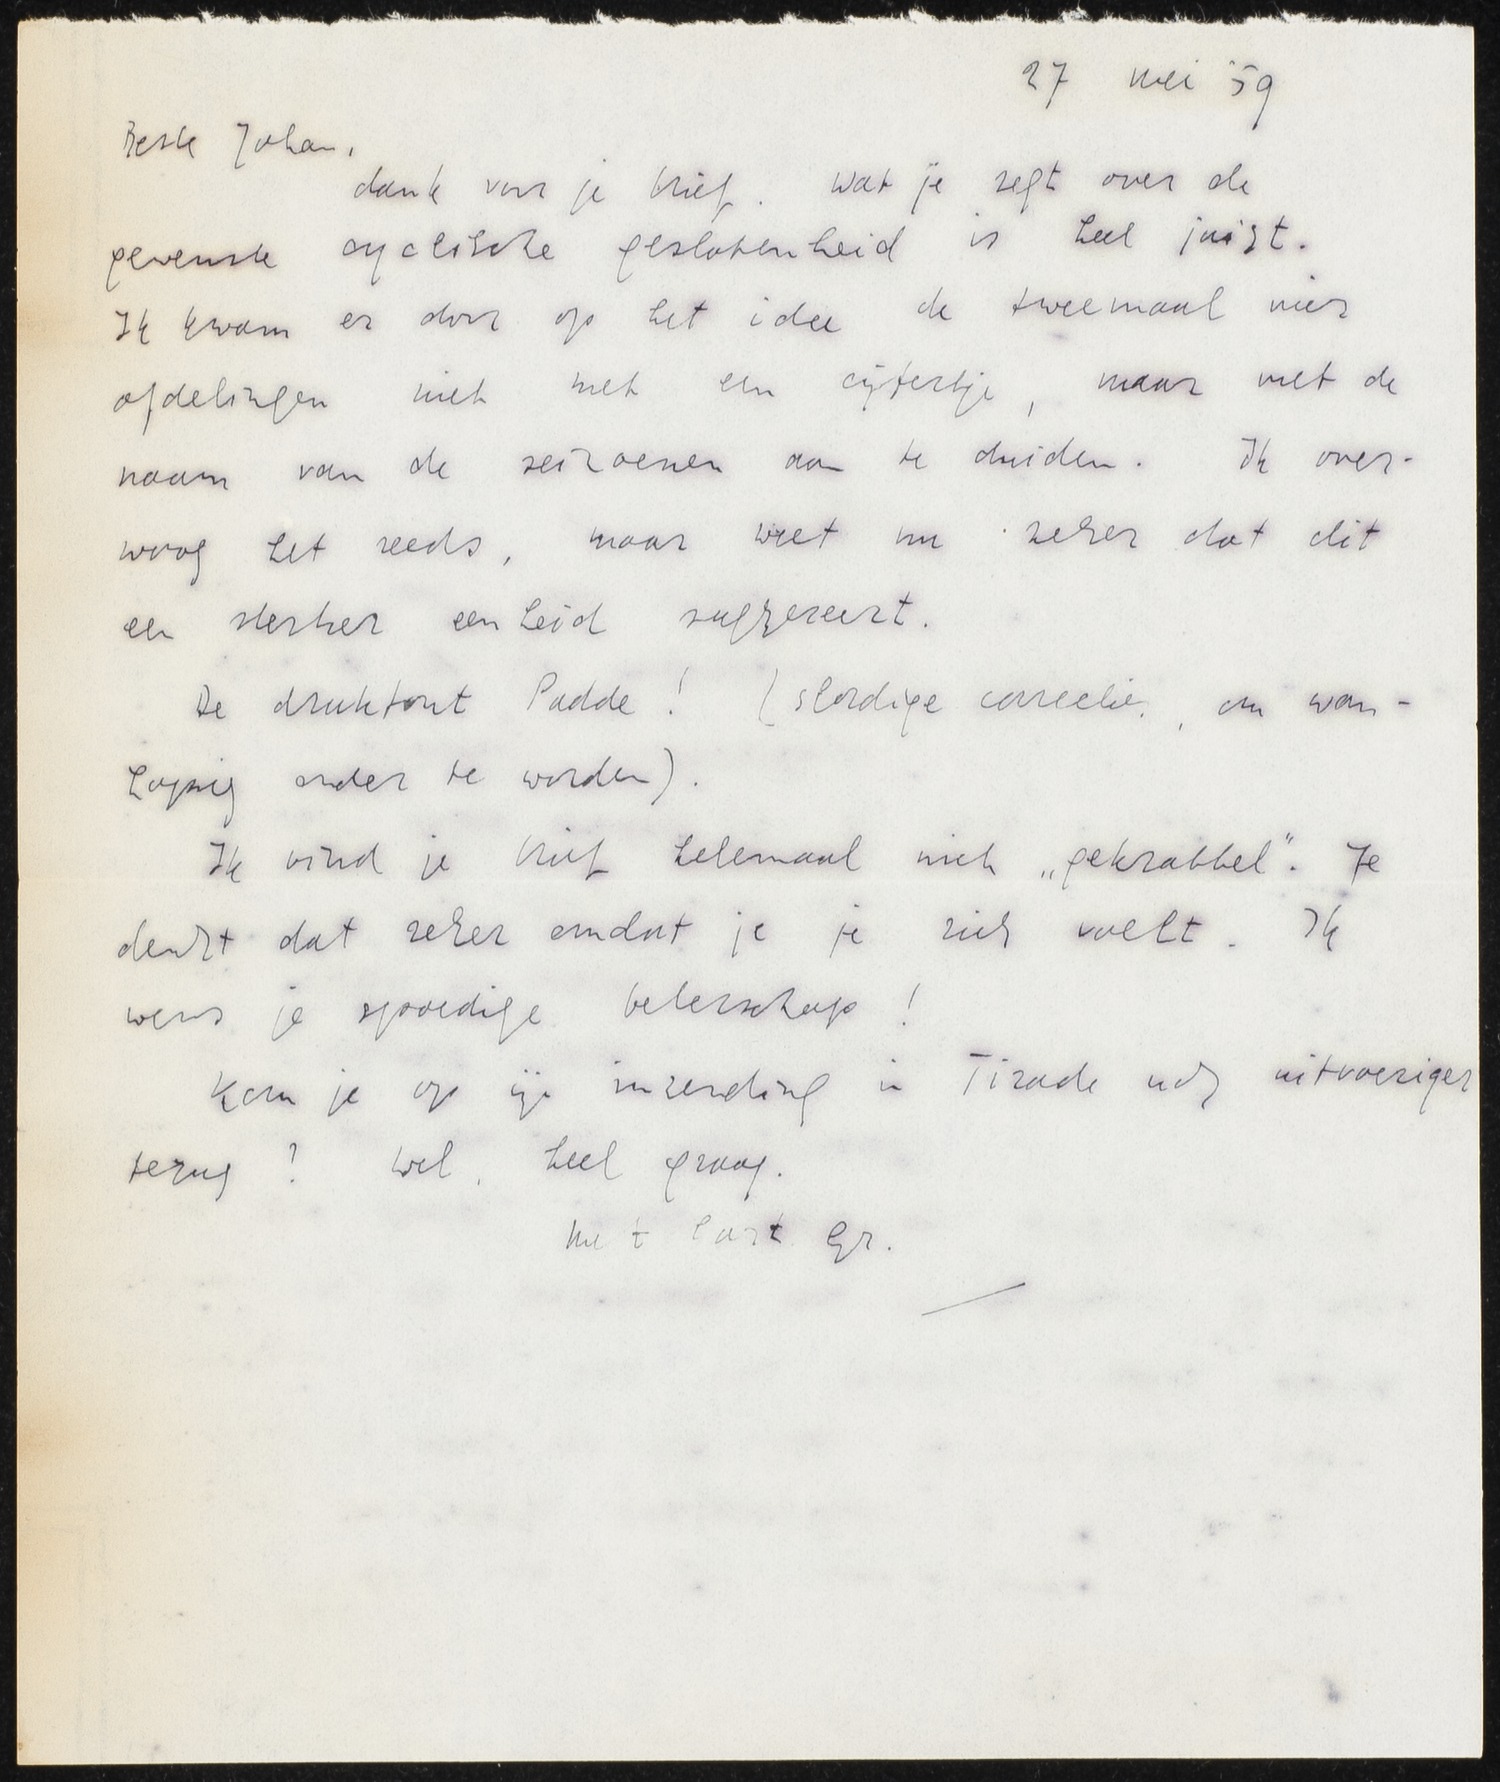 27 mei '59
Beste Johan,
dank voor je brief. Wat je zegt over de
gewenste cyclische geslotenheid is heel juist.
Ik kwam er door op het idee de tweemaal vier
afdelingen niet met een cijfertje, maar met de
naam van de seizoenen aan te duiden. Ik over-
woog het reeds, maar weet nu zeker dat dit
een sterker eenheid suggereert.
De drukfout Padde! (slordige correctie, om wan-
hopig onder te worden).
Ik vind je brief helemaal niet „gekrabbel". Je
denkt dat zeker omdat je je ziek voelt. Ik
wens je spoedige beterschap!
Kom je op inzending in Tirade nog uitvoeriger
terug? Wel, heel graag.
Met hart. Gr.